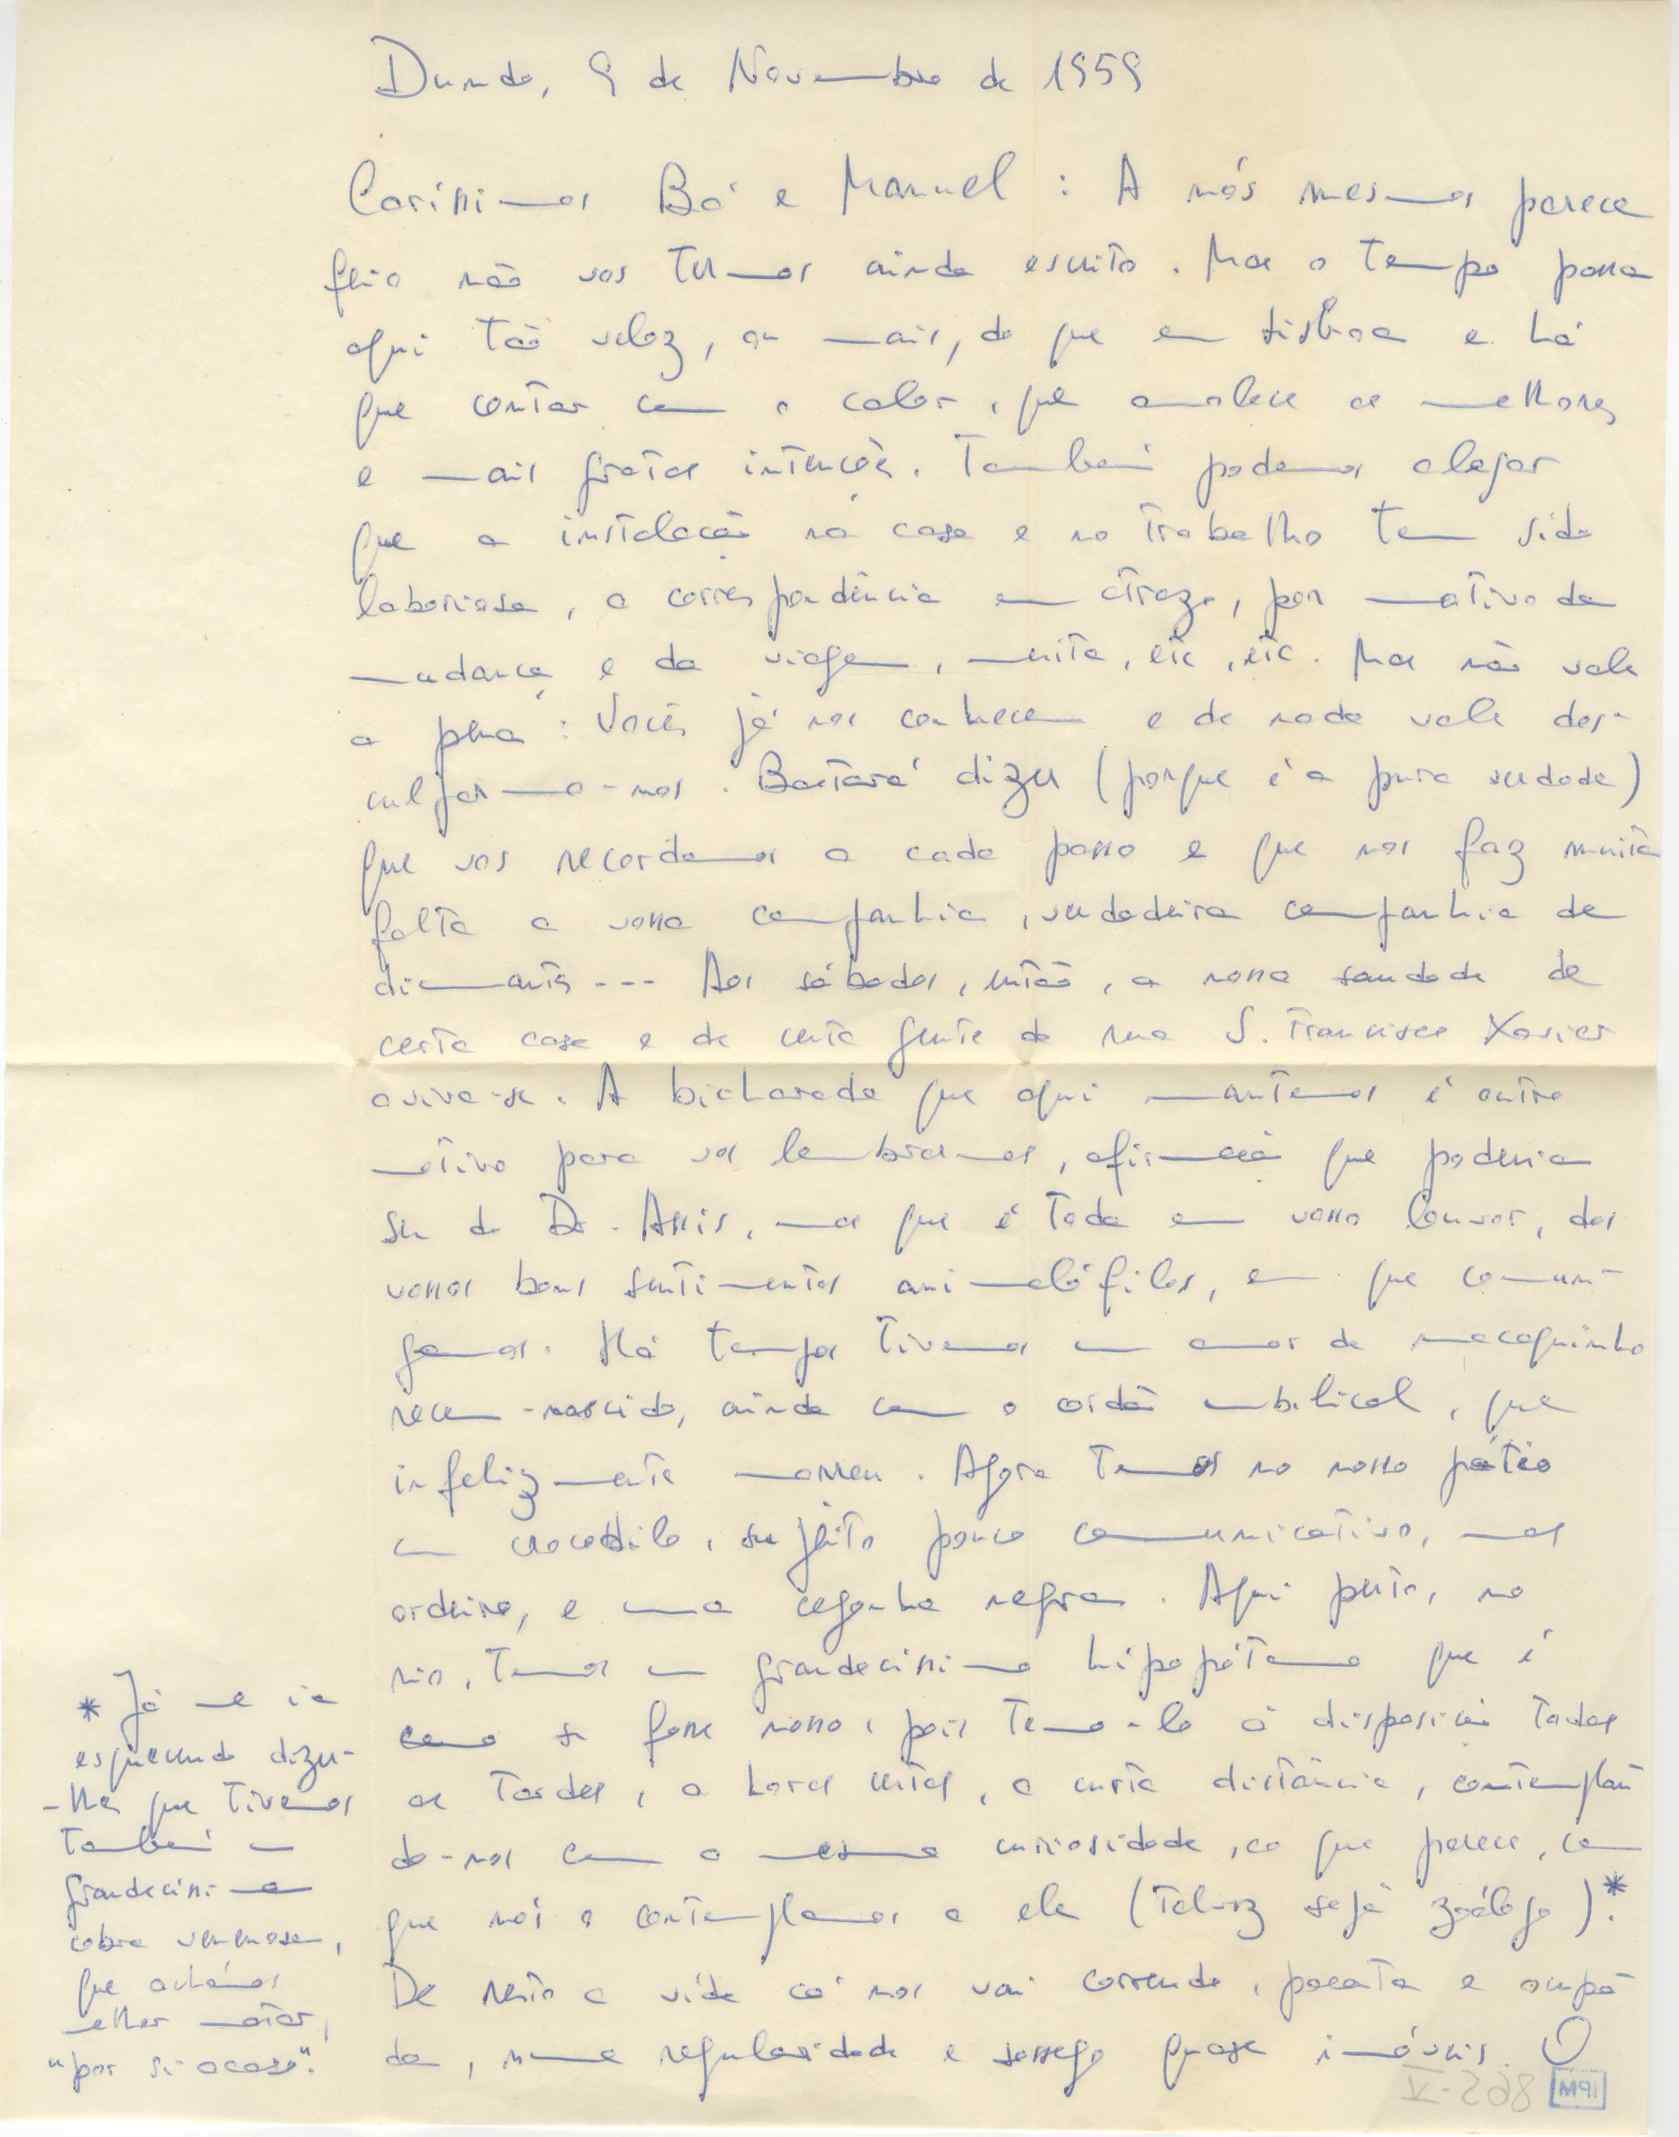 Dundo, 9 de Novembro de 1959
Caríssimos Bá e Manuel : A nós mesmos parece
feio não vos termos ainda escrito. Mas o tempo passa
aqui tão veloz, ou mais, do que em Lisboa e há
que contar com o calor, que amolece as melhores
e mais gratas intenções. Também podemos alegar
que a instalação na casa e no trabalho tem sido
laboriosa, a correspondência em atrazo, por motivo da
mudança e da viagem, muita, etc, etc. Mas não vale
a pena : Vocês já nos conhecem e de nada vale des-
culparmo-nos. Bastará dizer (porque é a pura verdade)
que vos recordamos a cada passo e que nos faz muita
falta a vossa companhia, verdadeira companhia de
diamantes --- Aos sábados, então, a nossa saudade de
certa casa e de certa gente da rua S. Francisco Xavier
aviva-se. A bicharada que aqui mantemos é outro
motivo para vos lembrarmos, afirmação que poderia
ser do Dr. Assis, mas que é toda em vosso louvor, dos
vossos bons sentimentos animalófilos, em que comun-
gamos. Há tempos tivemos um amor de macaquinho
recem-nascido, ainda com o cordão umbilical, que
infelizmente morreu. Agora temos no nosso pátio
um crocodilo, sujeito pouco comunicativo, mas
ordeiro, e uma cegonha negra. Aqui perto, no
rio, temos um grandecíssimo hipopótamo que é
como se fosse nosso, pois temo-lo à disposição todas
as tardes, a horas certas, a curta distância, contemplan
do-nos com a mesma curiosidade, ao que parece, com
que nós o contemplamos a ele (talvez seja zoólogo).*
De resto a vida cá nos vai correndo, pacata e ocupa
da, numa regularidade e sossego quase imóveis. O
* Já me ia
esquecendo dizer-
-lhes que tivemos
também uma
grandecíssima
cobra venenosa,
que achámos
melhor matar,
"por si acaso".
IPM 865-V